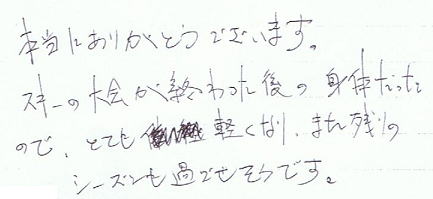 本当にありがとうございます。
スキーの大会が終わった後の身体だった
ので、とても軽くなり、また残りの
シーズンも過ごせそうです。